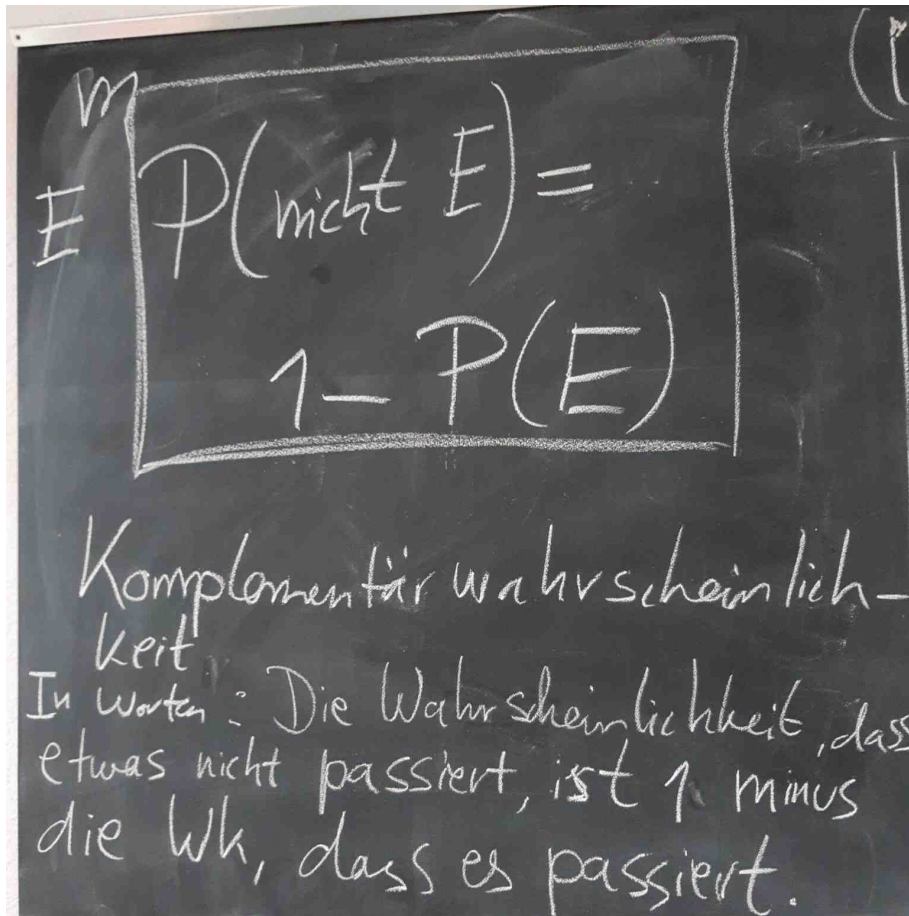 m
P(nicht E) =
E
1 – P(E)
Komplementärwahrscheinlich-
keit
In Worten: Die Wahrscheinlichkeit, dass
etwas nicht passiert, ist 1 minus
die Wk, dass es passiert.